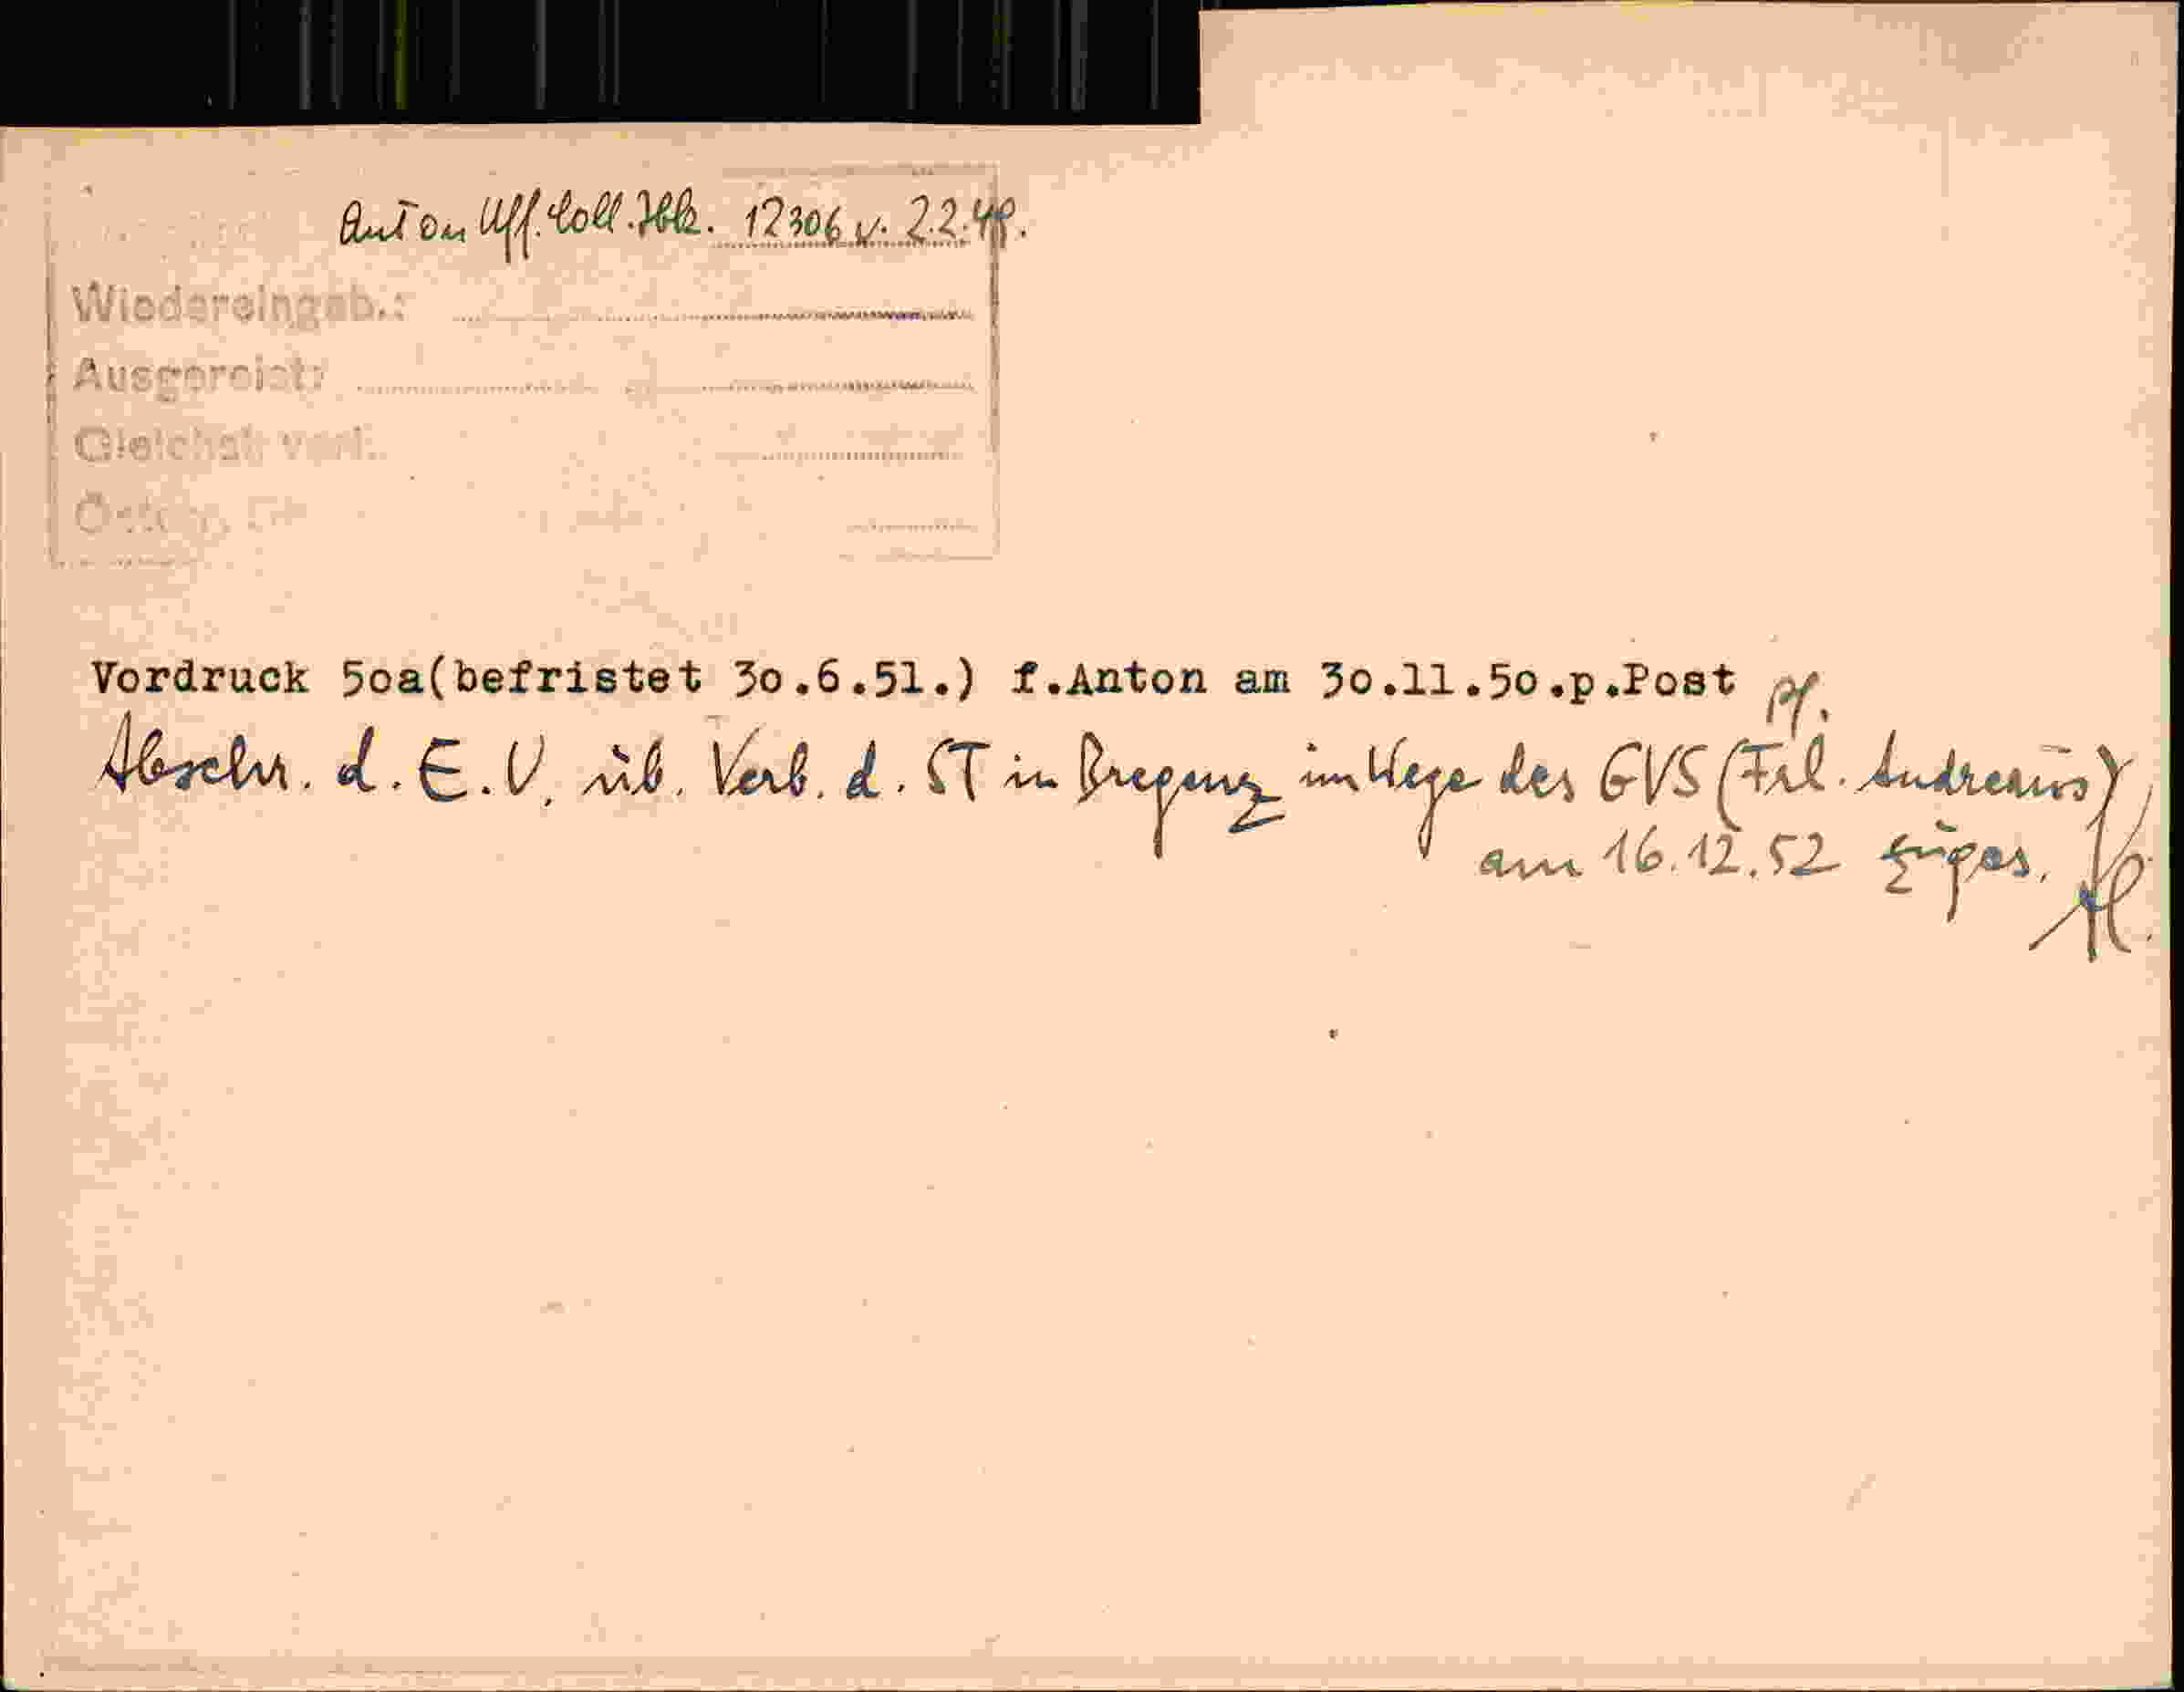 Anton Uff. Coll. Ibk. 12306 v. 2.2.48.
Wiedereingeb.:
Ausgereist:
Gleichst. verl.
Vordruck 5oa(befristet 3o.6.51.) f.Anton am 3o.11.5o.p.Post pf.
Abschr. d. E.V. üb. Verb. d. ST in Bregenz im Wege des GVS (Frl. Andreaus)
am 16.12.52 zuges.